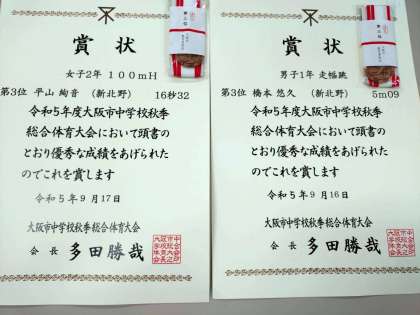 賞状
女子2年 100mH
第3位 平山 絢音 (新北野) 16秒32
令和5年度大阪市中学校秋季
総合体育大会において頭書の
とおり優秀な成績をあげられた
のでこれを賞します
令和5年9月17日
大阪市中学校秋季総合体育大会
会長 多田勝哉
賞状
男子1年 走幅跳
第3位 橋本 悠久 (新北野) 5m09
令和5年度大阪市中学校秋季
総合体育大会において頭書の
とおり優秀な成績をあげられた
のでこれを賞します
令和5年9月16日
大阪市中学校秋季総合体育大会
会長 多田勝哉